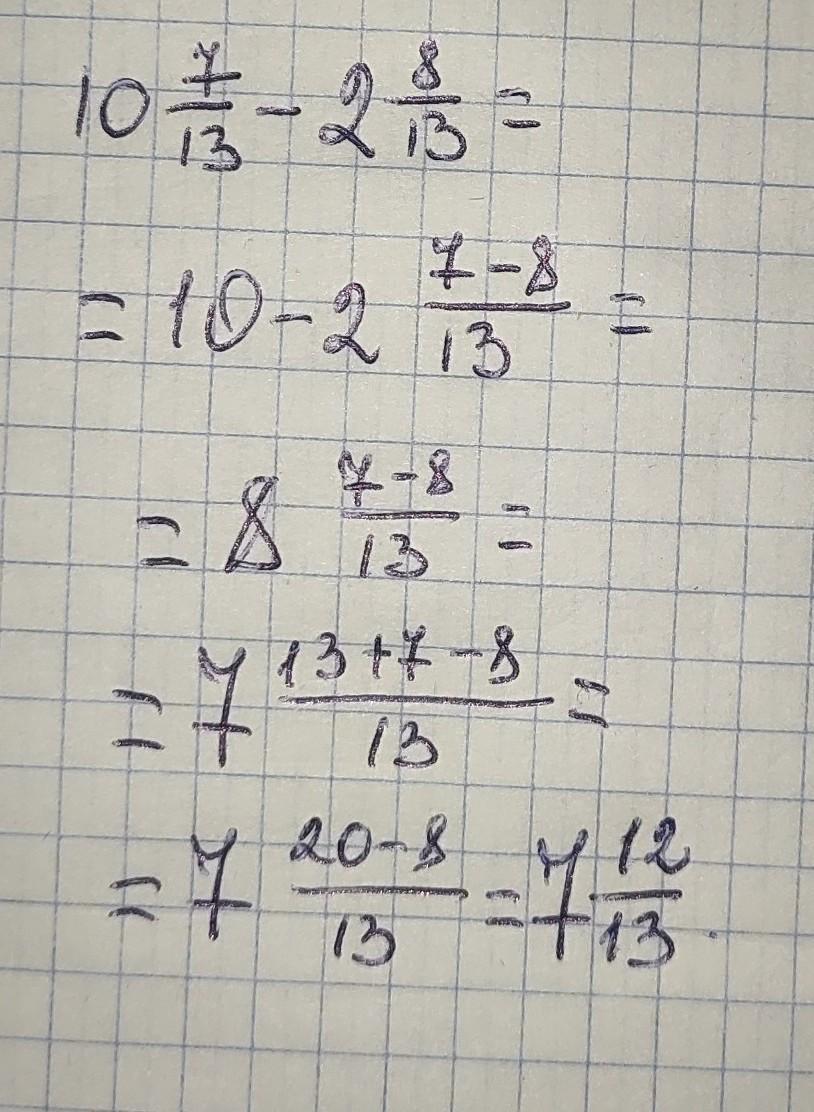 10 7/13 - 2 8/13 =
= 10 - 2 (7 - 8)/13 =
= 8 (7 - 8)/13 =
= 7 (13 + 7 - 8)/13 =
= 7 (20 - 8)/13 = 7 12/13.